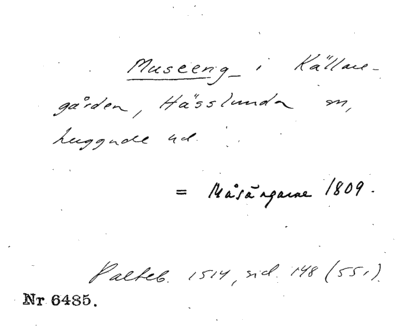 Museeng i Källne-
gården, Hässlunda sn,
huggude ud.
= Måsängarne 1809.
Palteb. 1514, sid. 148 (551)
Nr 6485.